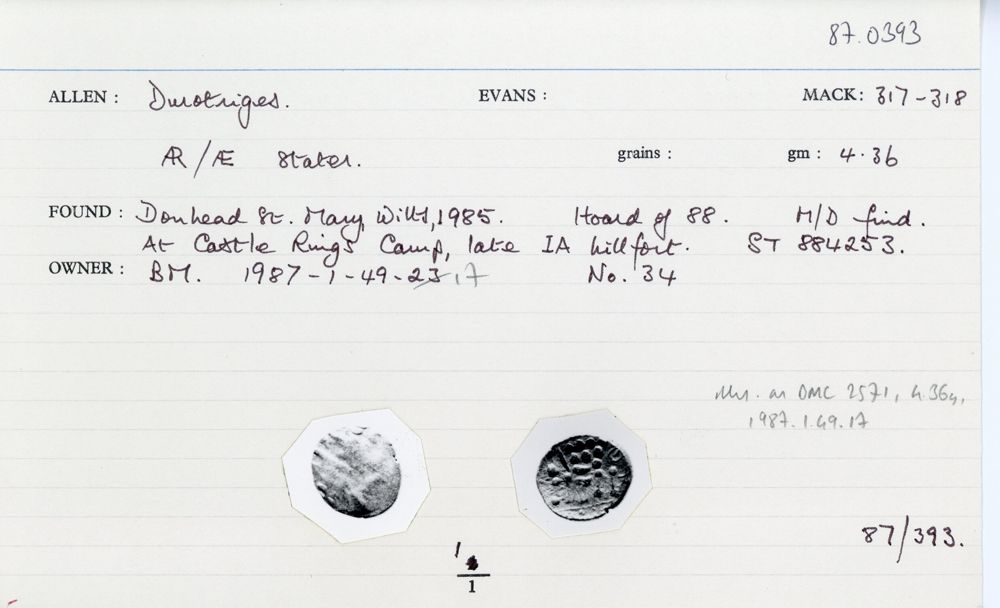 87.0393
ALLEN : Durotriges. EVANS : MACK: 317-318
ÆR/Æ Stater. grains : gm : 4.36
FOUND : Donhead St. Mary, Wilts, 1985. Hoard of 88. M/D find.
At Castle Rings Camp, late IA hillfort. ST 884253.
OWNER : BM. 1987-1-49-23 17 No. 34
illus. as BMC 2571, 4.36g,
1987.1.49.17
87/393.
1
1